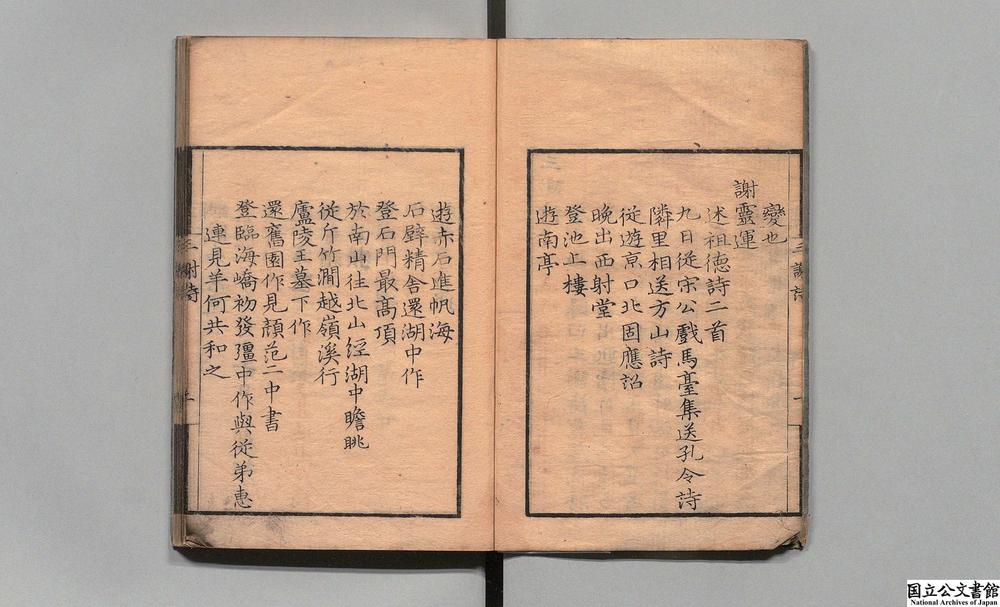 變也
謝靈運
述祖德詩二首
九日從宋公戲馬臺集送孔令詩
隣里相送方山詩
從遊京口北固應詔
晚出西射堂
登池上樓
遊南亭
遊赤石進帆海
石壁精舎還湖中作
登石門最髙頂
於南山往北山經湖中瞻眺
從斤竹澗越嶺溪行
廬陵王墓下作
還舊園作見顔范二中書
登臨海嶠初發彊中作與從弟惠
連見羊何共和之
三謝詩
国立公文書館
National Archives of Japan